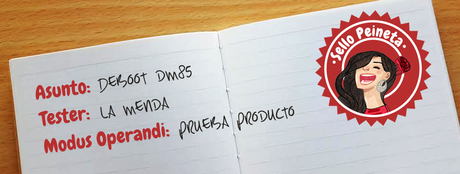 Sello Peineta
Asunto: DEBOOT DM85
Tester: LA MENDA
Modus Operandi: PRUEBA PRODUCTO